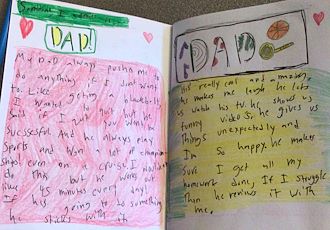 Someone I admire is my
DAD!
My DAD always pushes me to
do anything if I dont want
to. Like
I wanted to quit
said if I quit but he
you wont be
successful And he always play
Sports and Won a lot of champion
ships! even on cruise I wouldn't
do this but he works out
like 45 minutes every day!
If his going to do something
he sticks with it
DAD
His really cool and amazing
he makes me laugh he lets
us watch his tv. he shows us
funny videos, he gives us
things unexpectedly and
Im so happy, he makes
Sure I get all my
homework done, If I struggle
Than he reviews it with
me.